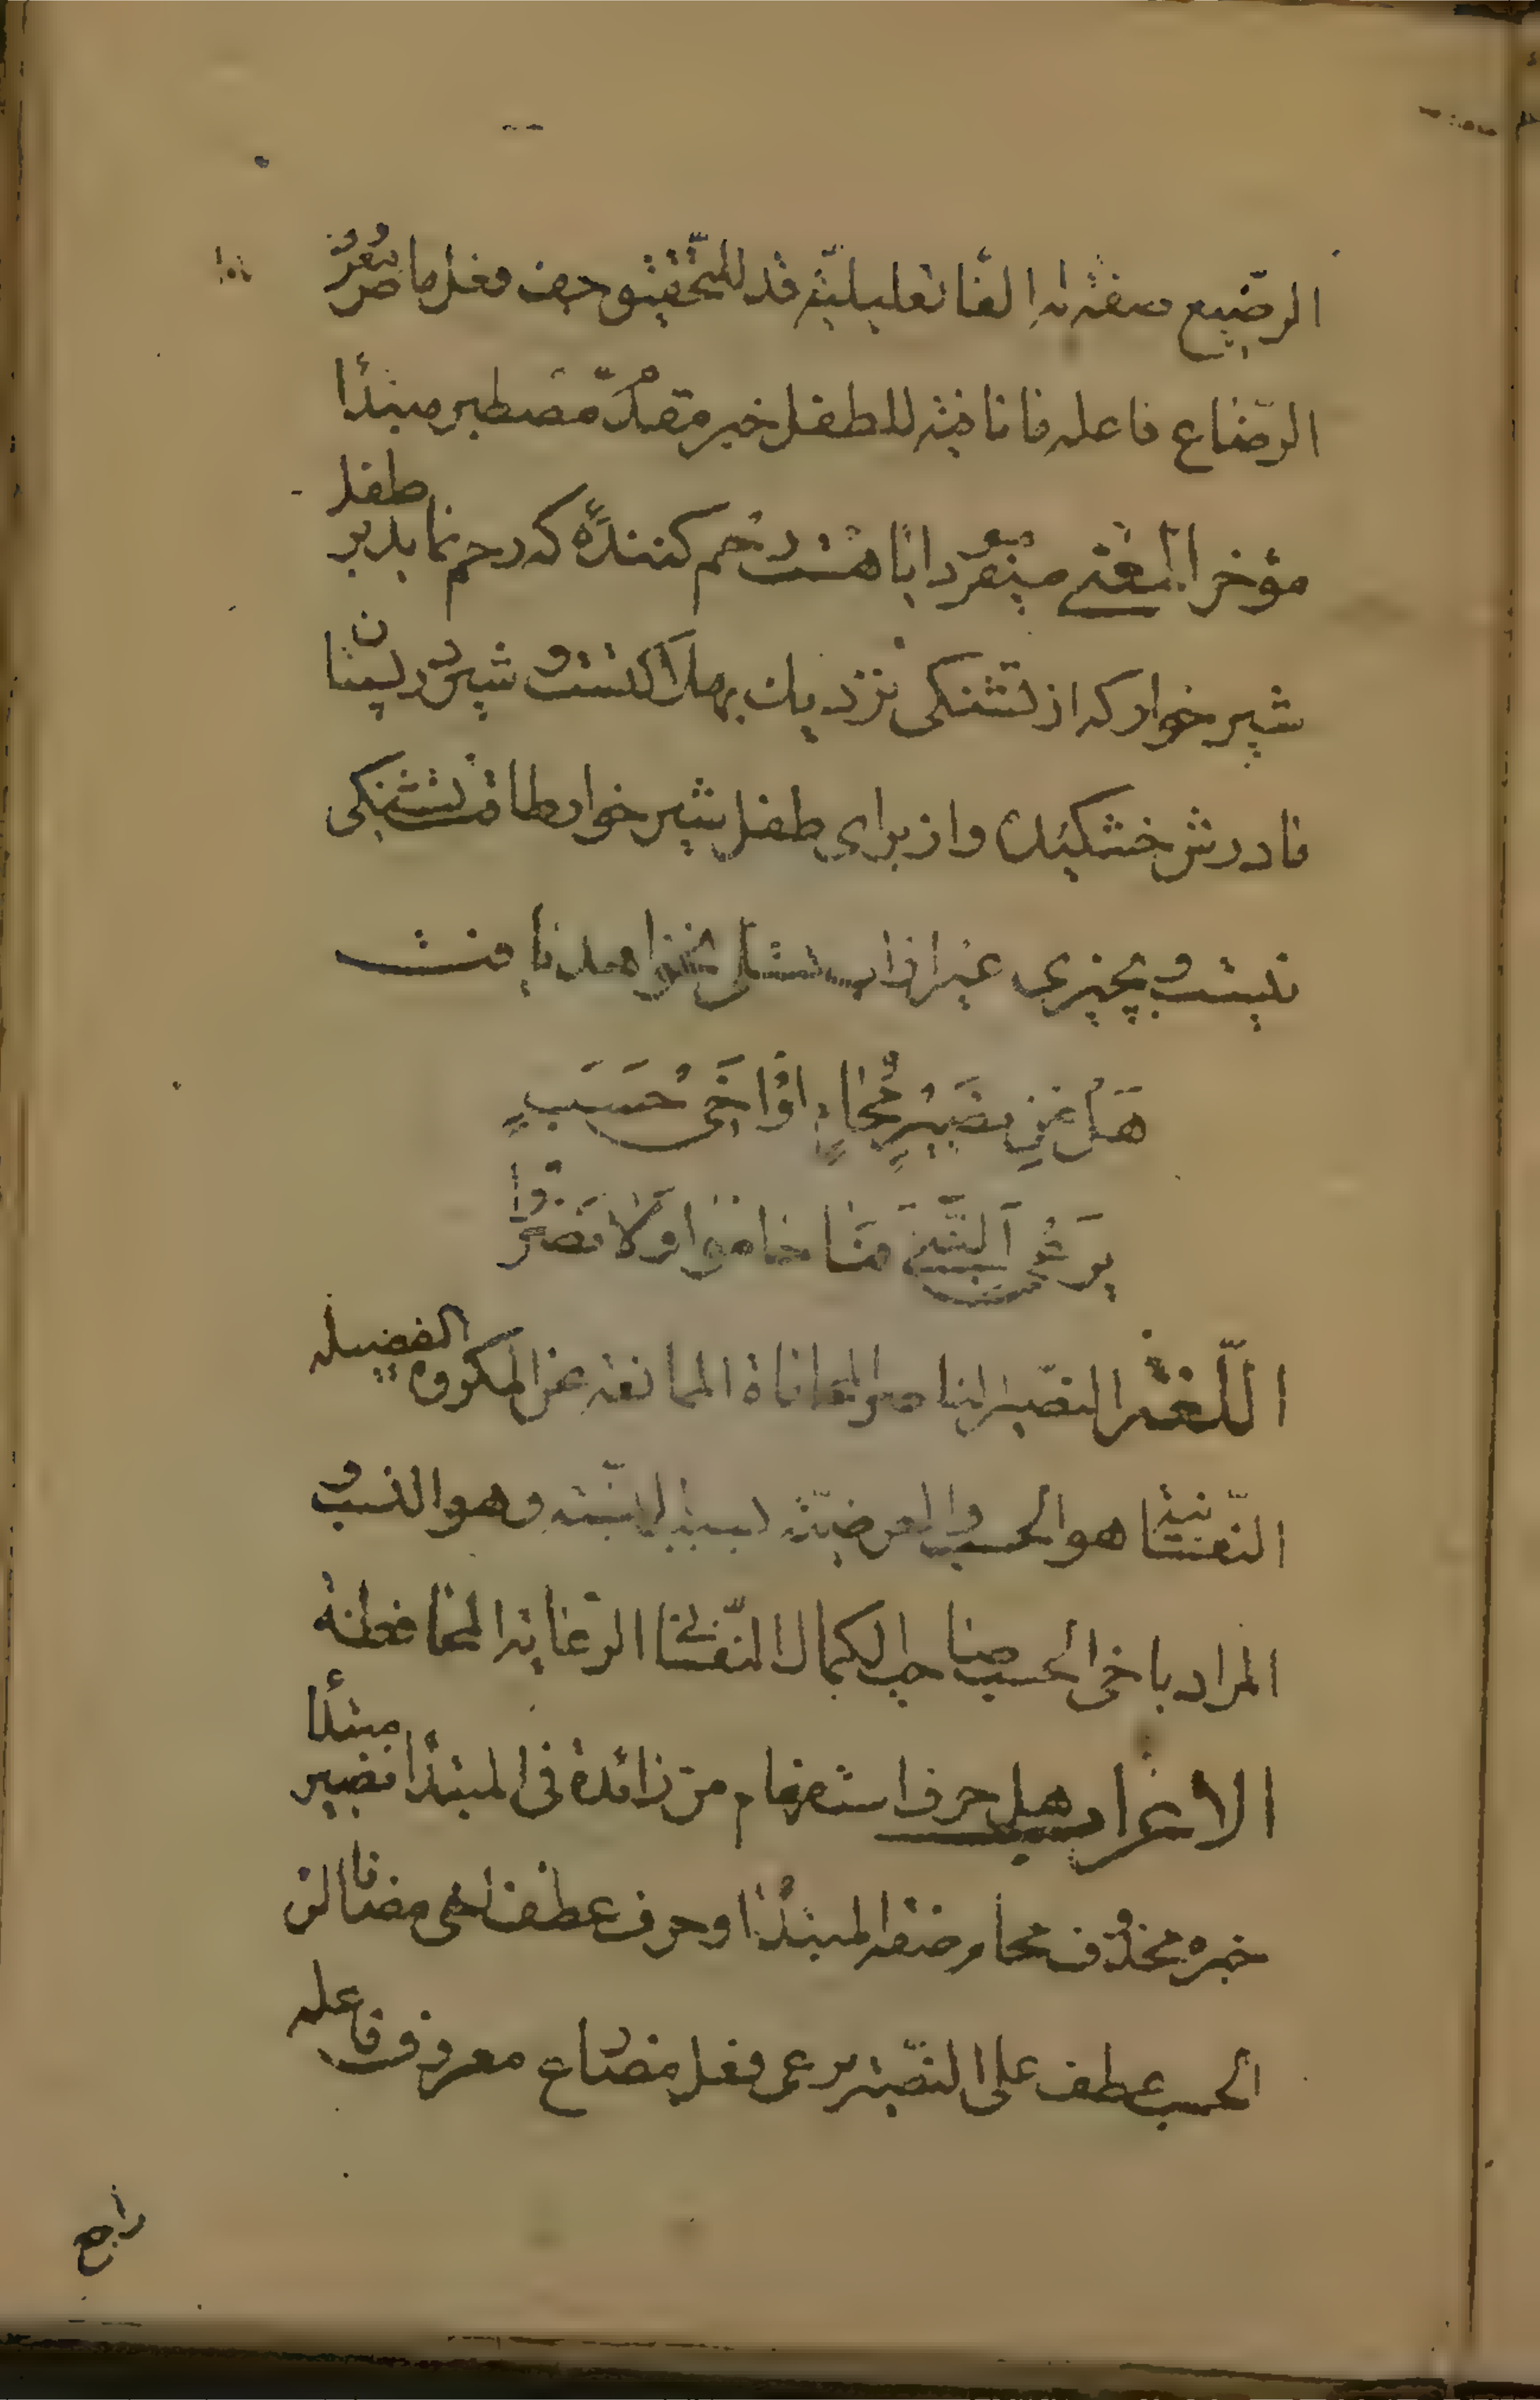 الرضیع صفته له الفا تعلیلیة قد للتحقیق جف فعل ماض معز
الرضاع فاعله ما نافیة للطفل خبر مقدم مصطبر مبتدأ
مؤخر المعنی میفرماید ایا هست رحم کننده که رحم نماید بر طفل
شیر خوار که از تشنکی نزدیک بهلاکتست و شیر در پستان
مادرش خشکیده و از برای طفل شیر خوار طاقت تشنکی
نیست و بچیزی غیر از اب تسلی نخواهد یافت
هَل مِن نصَیرٍ مُحامٍ اوْ اَخی حَسَبٍ
یَرعی النَّبیَّ فمَا حامَوا وَلا نَصَرُوا
اللّغة النصیر الناصر المحاماة الممانعة عن المکروه الفضیله
النّفسانیة هو الحسب و العرضیّة النسبیّة و هو النسب و
المراد باخی الحسب صاحب الکمال النّفسانی الرّعایة المحافظة
الاعراب هل حرف استفهام من زائدة فی المبتدأ نصیر مبتدأ
خبره محذوف محام صفة المبتدأ او حرف عطف اخی مضاف الی
الحسب عطف علی النصیر یرعی فعل مضارع معروف فاعله
راجع